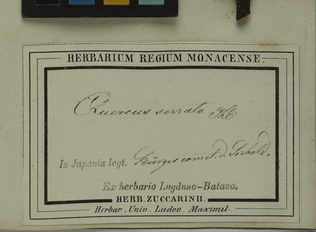 HERBARIUM REGIUM MONACENSE.
Quercus serrata Thb.
In Japonia legt. Bürger comt. d. Siebold.
Ex herbario Lugduno-Batavo.
HERB. ZUCCARINII.
Herbar. Univ. Ludov. Maximil.